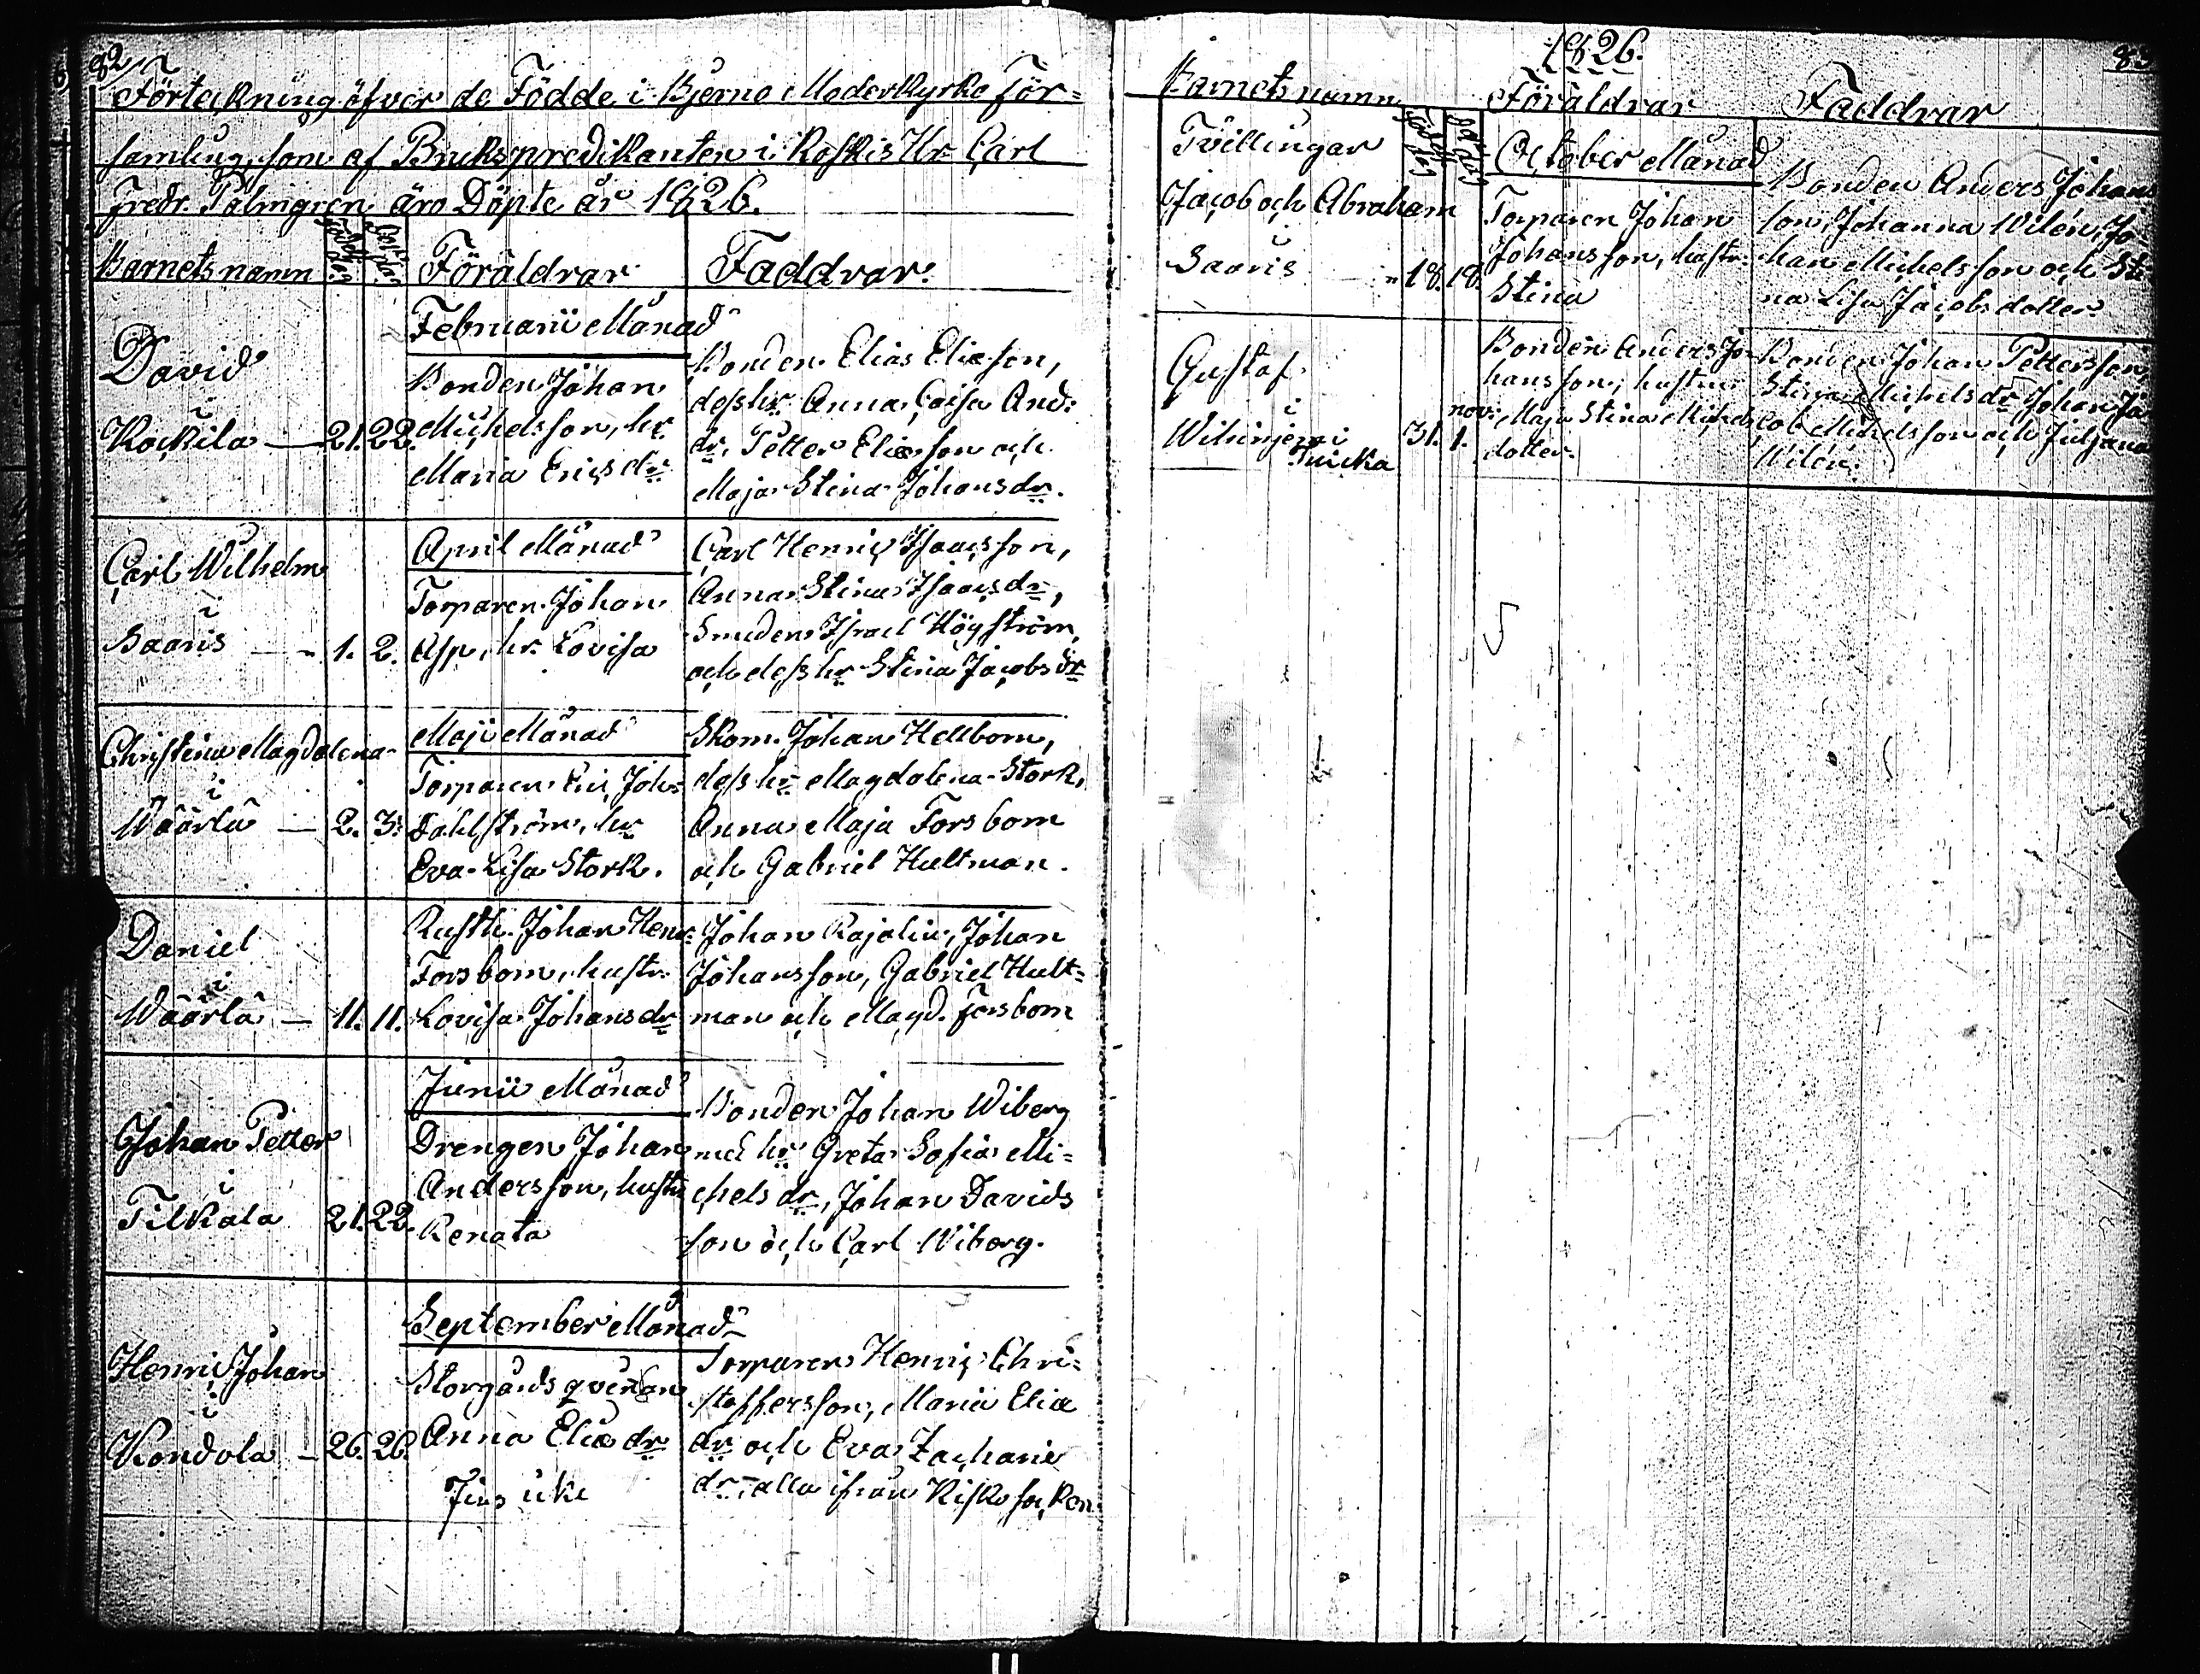 82
Förteckning öfver de Födde i Bjerno Moderkyrko För-
samling, som af Brukspredikanten i Koskis Hr Carl
Fredr. Palmgren äro Döpte år 1826.
Barnets namn Föräldrar Faddrar.
Februarii Månad
David
i
Kockila — 21. 22.
Bonden Johan
Michelsson, hr
Maria Ericsdr
Bonden Elias Eliæson,
dess hr Anna Caisa And:
dr, Petter Eliæson och
Maja Stina Johansdr.
April Månad
Carl Wilhelm
i
Saaris — 1. 2.
Torparen Johan
Asp, hr. Lovisa
Carl Henric Isaacsson,
Anna Stina Isaacsdr,
Smeden Israel Högström,
och dess hr Stina Jacobsdr
Maji Månad
Christina Magdalena
i
Wäärlä — 2. 3.
Torparen Eric Joh:
Dahlström, hr
Eva Lisa Stork.
Skom. Johan Hellbom,
dess hr Magdalena Stork,
Anna Maja Forsbom
och Gabriel Hultman.
Daniel
i
Wäärlä — 11. 11.
Rusth. Johan Henr:
Forsbom, hustr.
Lovisa Johansdr
Johan Rajalin, Johan
Johansson, Gabriel Hult-
man och Magd. Forsbom
Junii Månad
Johan Petter
i
Tilkala 21. 22.
Drengen Johan
Andersson, hustr
Renata
Bonden Johan Wiberg
med hr Greta Sofia Mi-
chelsdr, Johan Davids
son och Carl Wiberg.
September Månad
Henric Johan
i
Kondola — 26. 26.
Storgårds qvinnan
Anna Eliædr
Torparen Henric Chri-
stoffersson, Maria Eliæ
dr och Eva Zachariæ
dr, alla ifrån Kisko socken
1826.
83
Barnets namn Föräldrar Faddrar
October Månad
Tvillingar
Jacob och Abraham
i
Saaris 18. 18.
Torparen Johan
Johansson, hustr.
Stina
Bonden Anders Johans
son, Johanna Wilén, Jo-
han Michelsson och Sti
na Lisa Jacobsdotter
Gustaf
i
31. nov: 1.
Bonden Anders Jo-
hansson, hustru
Maja Stina Michels
dotter.
Bonden Johan Pettersson,
Stina Michelsdr Johan Ja
cob Michelsson och Juljana
Wilén.